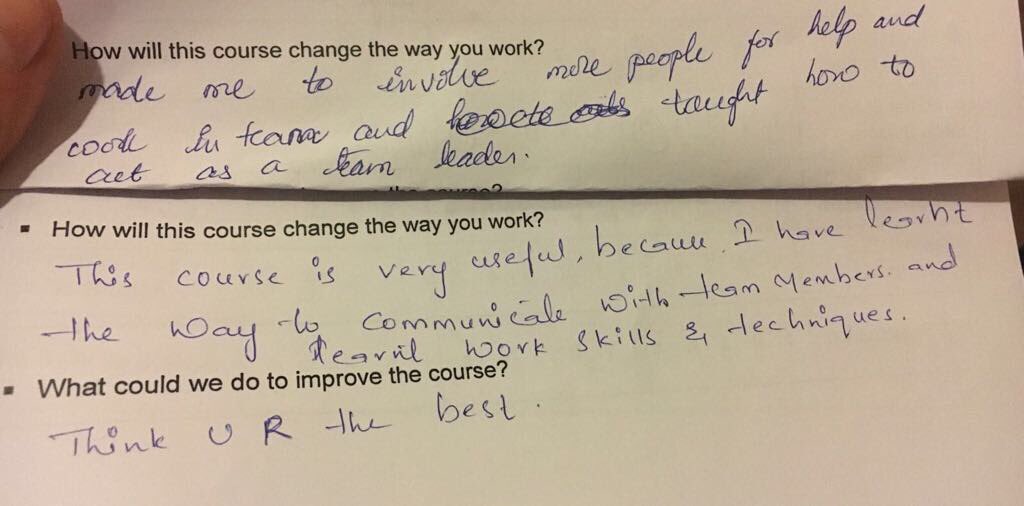 How will this course change the way you work?
made me to involve more people for help and
work in team and taught how to
act as a team leader.
▪ How will this course change the way you work?
This course is very useful, because I have learnt
the way to communicate with team members. and
learnt work skills & techniques.
▪ What could we do to improve the course?
Think U R the best.